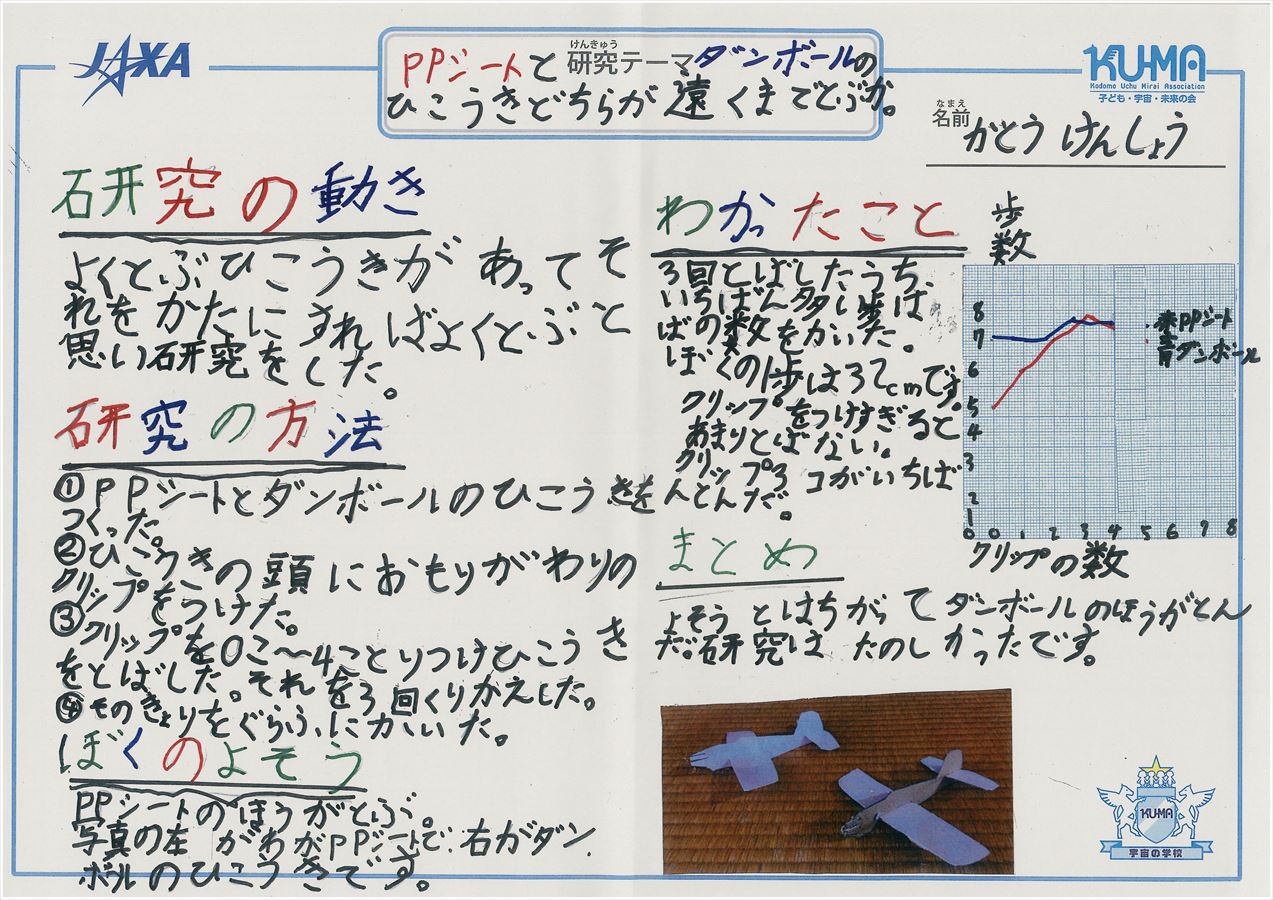 JAXA
けんきゅう
研究テーマ
PPシートとダンボールの
ひこうきどちらが遠くまでとぶか。
KU-MA
Kodomo Uchu Mirai Association
子ども・宇宙・未来の会
なまえ
名前
がとうけんしょう
研究の動き
よくとぶひこうきがあってそ
れをかたにすればよくとぶと
思い研究をした。
研究の方法
①PPシートとダンボールのひこうきを
つくった。
②ひこうきの頭におもりがわりの
クリップをつけた。
③クリップを0こ〜4ことりつけひこうき
をとばした。それを3回くりかえした。
④そのきょりをぐらふにかいた。
ぼくのよそう
PPシートのほうがとぶ。
写真の左がわがPPシートで右がダン
ボールのひこうきです。
わかったこと
3回とばしたうち、
いちばん多い歩は
ばの数をかいた。
ぼくの1歩は37cmです。
クリップをつけすぎると
あまりとばない。
クリップ3コがいちば
んとんだ。
歩数
8
7
6
5
4
3
2
1
0
0 1 2 3 4 5 6 7 8
クリップの数
赤PPシート
青ダンボール
まとめ
よそうとはちがってダンボールのほうがとん
だ。研究はたのしかったです。
KUMA
宇宙の学校